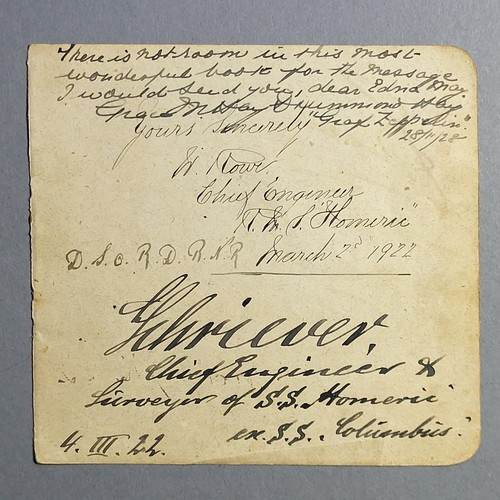 There is not room in this most
wonderful book for the message
I would send you, dear Edna May
Grace M. Hay Drummond Hay
"Graf Zeppelin".
28/11/28
Yours Sincerely
Chief Engineer
R.M.S. "Homeric"
D.S.O. R.D. R.N.R March 2nd 1922
Schriever,
Chief Engineer &
Surveyor of S.S. Homeric
ex. S.S. "Columbus".
4. III. 22.